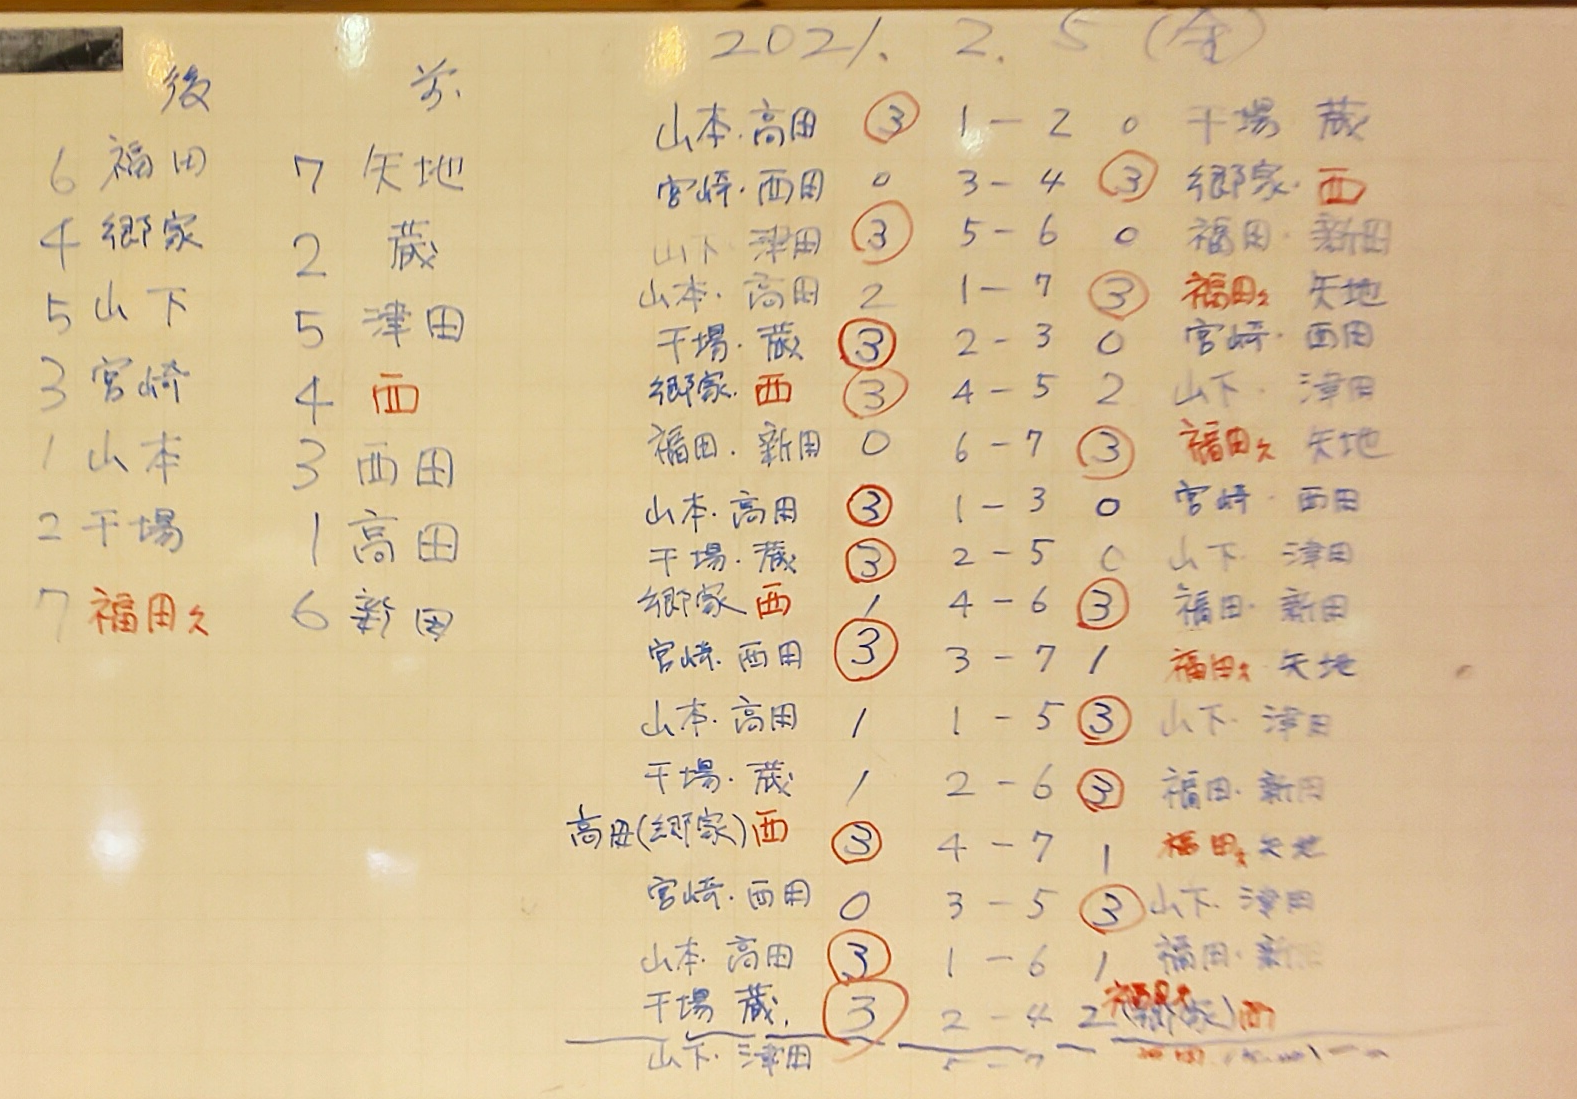 2021. 2. 5 (金)
後 前
6 福田 7 矢地
4 郷家 2 蔵
5 山下 5 津田
3 宮崎 4 西
1 山本 3 西田
2 干場 1 高田
7 福田久 6 新田
山本・高田 ③ 1-2 0 干場 蔵
宮崎・西田 0 3-4 ③ 郷家・西
山下 津田 ③ 5-6 0 福田・新田
山本・高田 2 1-7 ③ 福田久 矢地
干場・蔵 ③ 2-3 0 宮崎・西田
郷家・西 ③ 4-5 2 山下・津田
福田・新田 0 6-7 ③ 福田久 矢地
山本・高田 ③ 1-3 0 宮崎・西田
干場・蔵 ③ 2-5 0 山下・津田
郷家 西 1 4-6 ③ 福田・新田
宮崎・西田 ③ 3-7 1 福田久・矢地
山本・高田 1 1-5 ③ 山下・津田
干場・蔵 1 2-6 ③ 福田・新田
高田(郷家)西 ③ 4-7 1 福田久 矢地
宮崎・西田 0 3-5 ③ 山下・津田
山本・高田 ③ 1-6 1 福田・新田
干場 蔵 ③ 2-4 2 (郷家)西
山下・津田 5-7